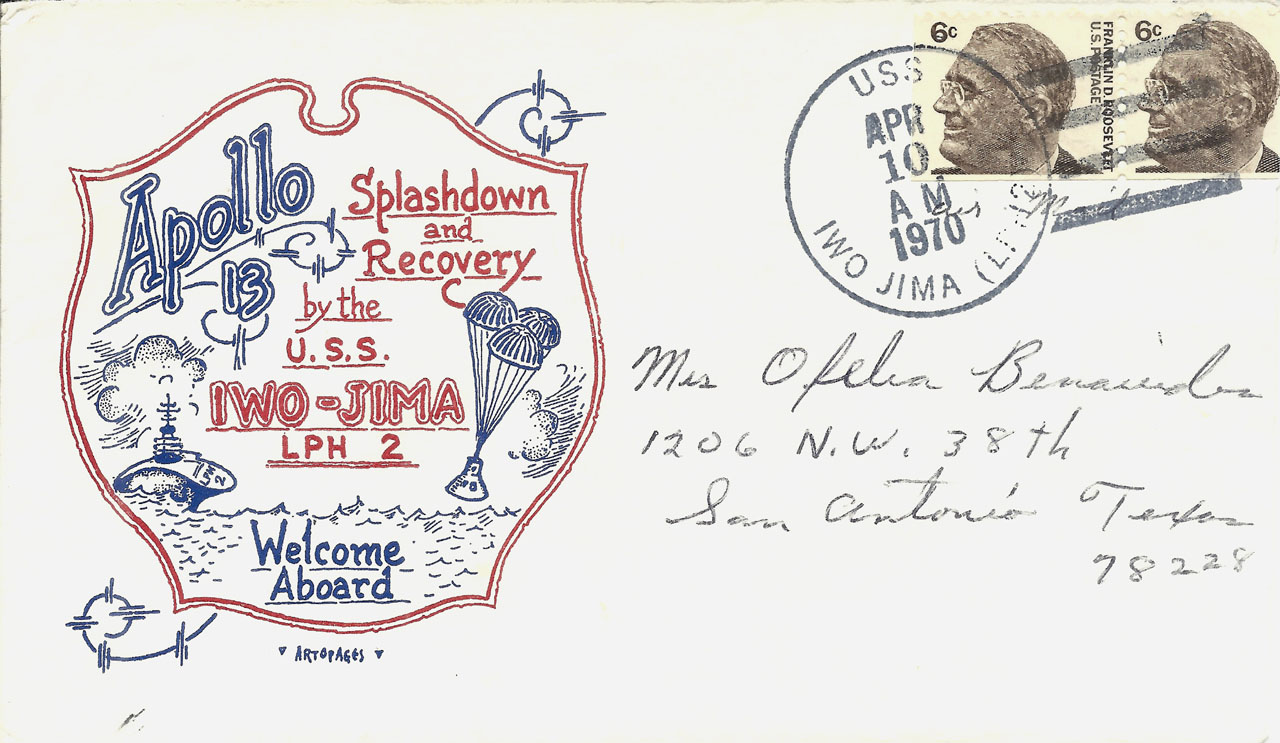 Apollo
13
Splashdown
and
Recovery
by the
U.S.S.
IWO-JIMA
LPH 2
Welcome
Aboard
ARTOPAGES
6c
FRANKLIN D. ROOSEVELT
U.S. POSTAGE
6c
USS
APR
10
AM
1970
IWO JIMA (LPH
Mrs Ofelia Benavides
1206 N.W. 38th
San Antonio Texas
78228